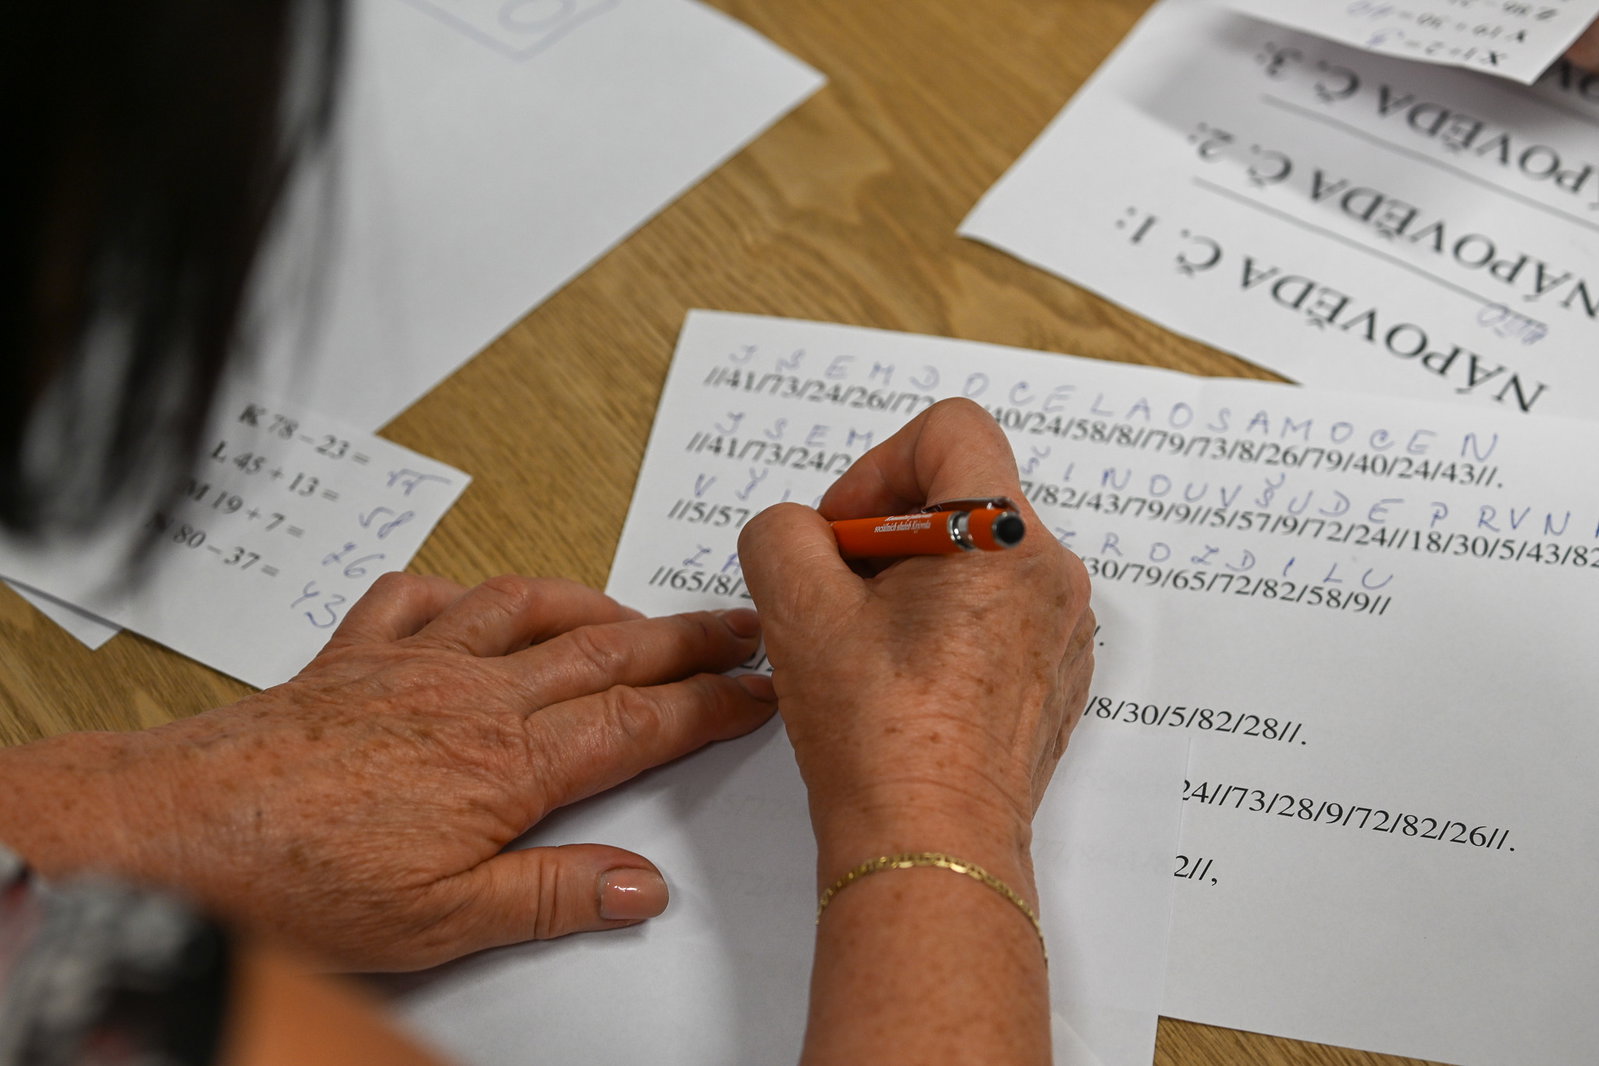 NÁPOVĚDA Č. 1:
NÁPOVĚDA Č. 2:
NÁPOVĚDA Č. 3:
K 78 – 23 = 55
L 45 + 13 = 58
M 19 + 7 = 26
N 80 – 37 = 43
J S E M D O C E L A O S A M O C E N
//41/73/24/26//72 40/24/58/8//79/73/8/26/79/40/24/43//.
J S E M Š I N O U V Š U D E P R V N
//41/73/24/2 7/82/43/79/9//5/57/9/72/24//18/30/5/43/82
V Š I Z R O Z D I L U
//5/57 30/79/65/72/82/58/9//
Z A
//65/8/
/8/30/5/82/28//.
24//73/28/9/72/82/26//.
2//,
sociálních služeb Kyjovska